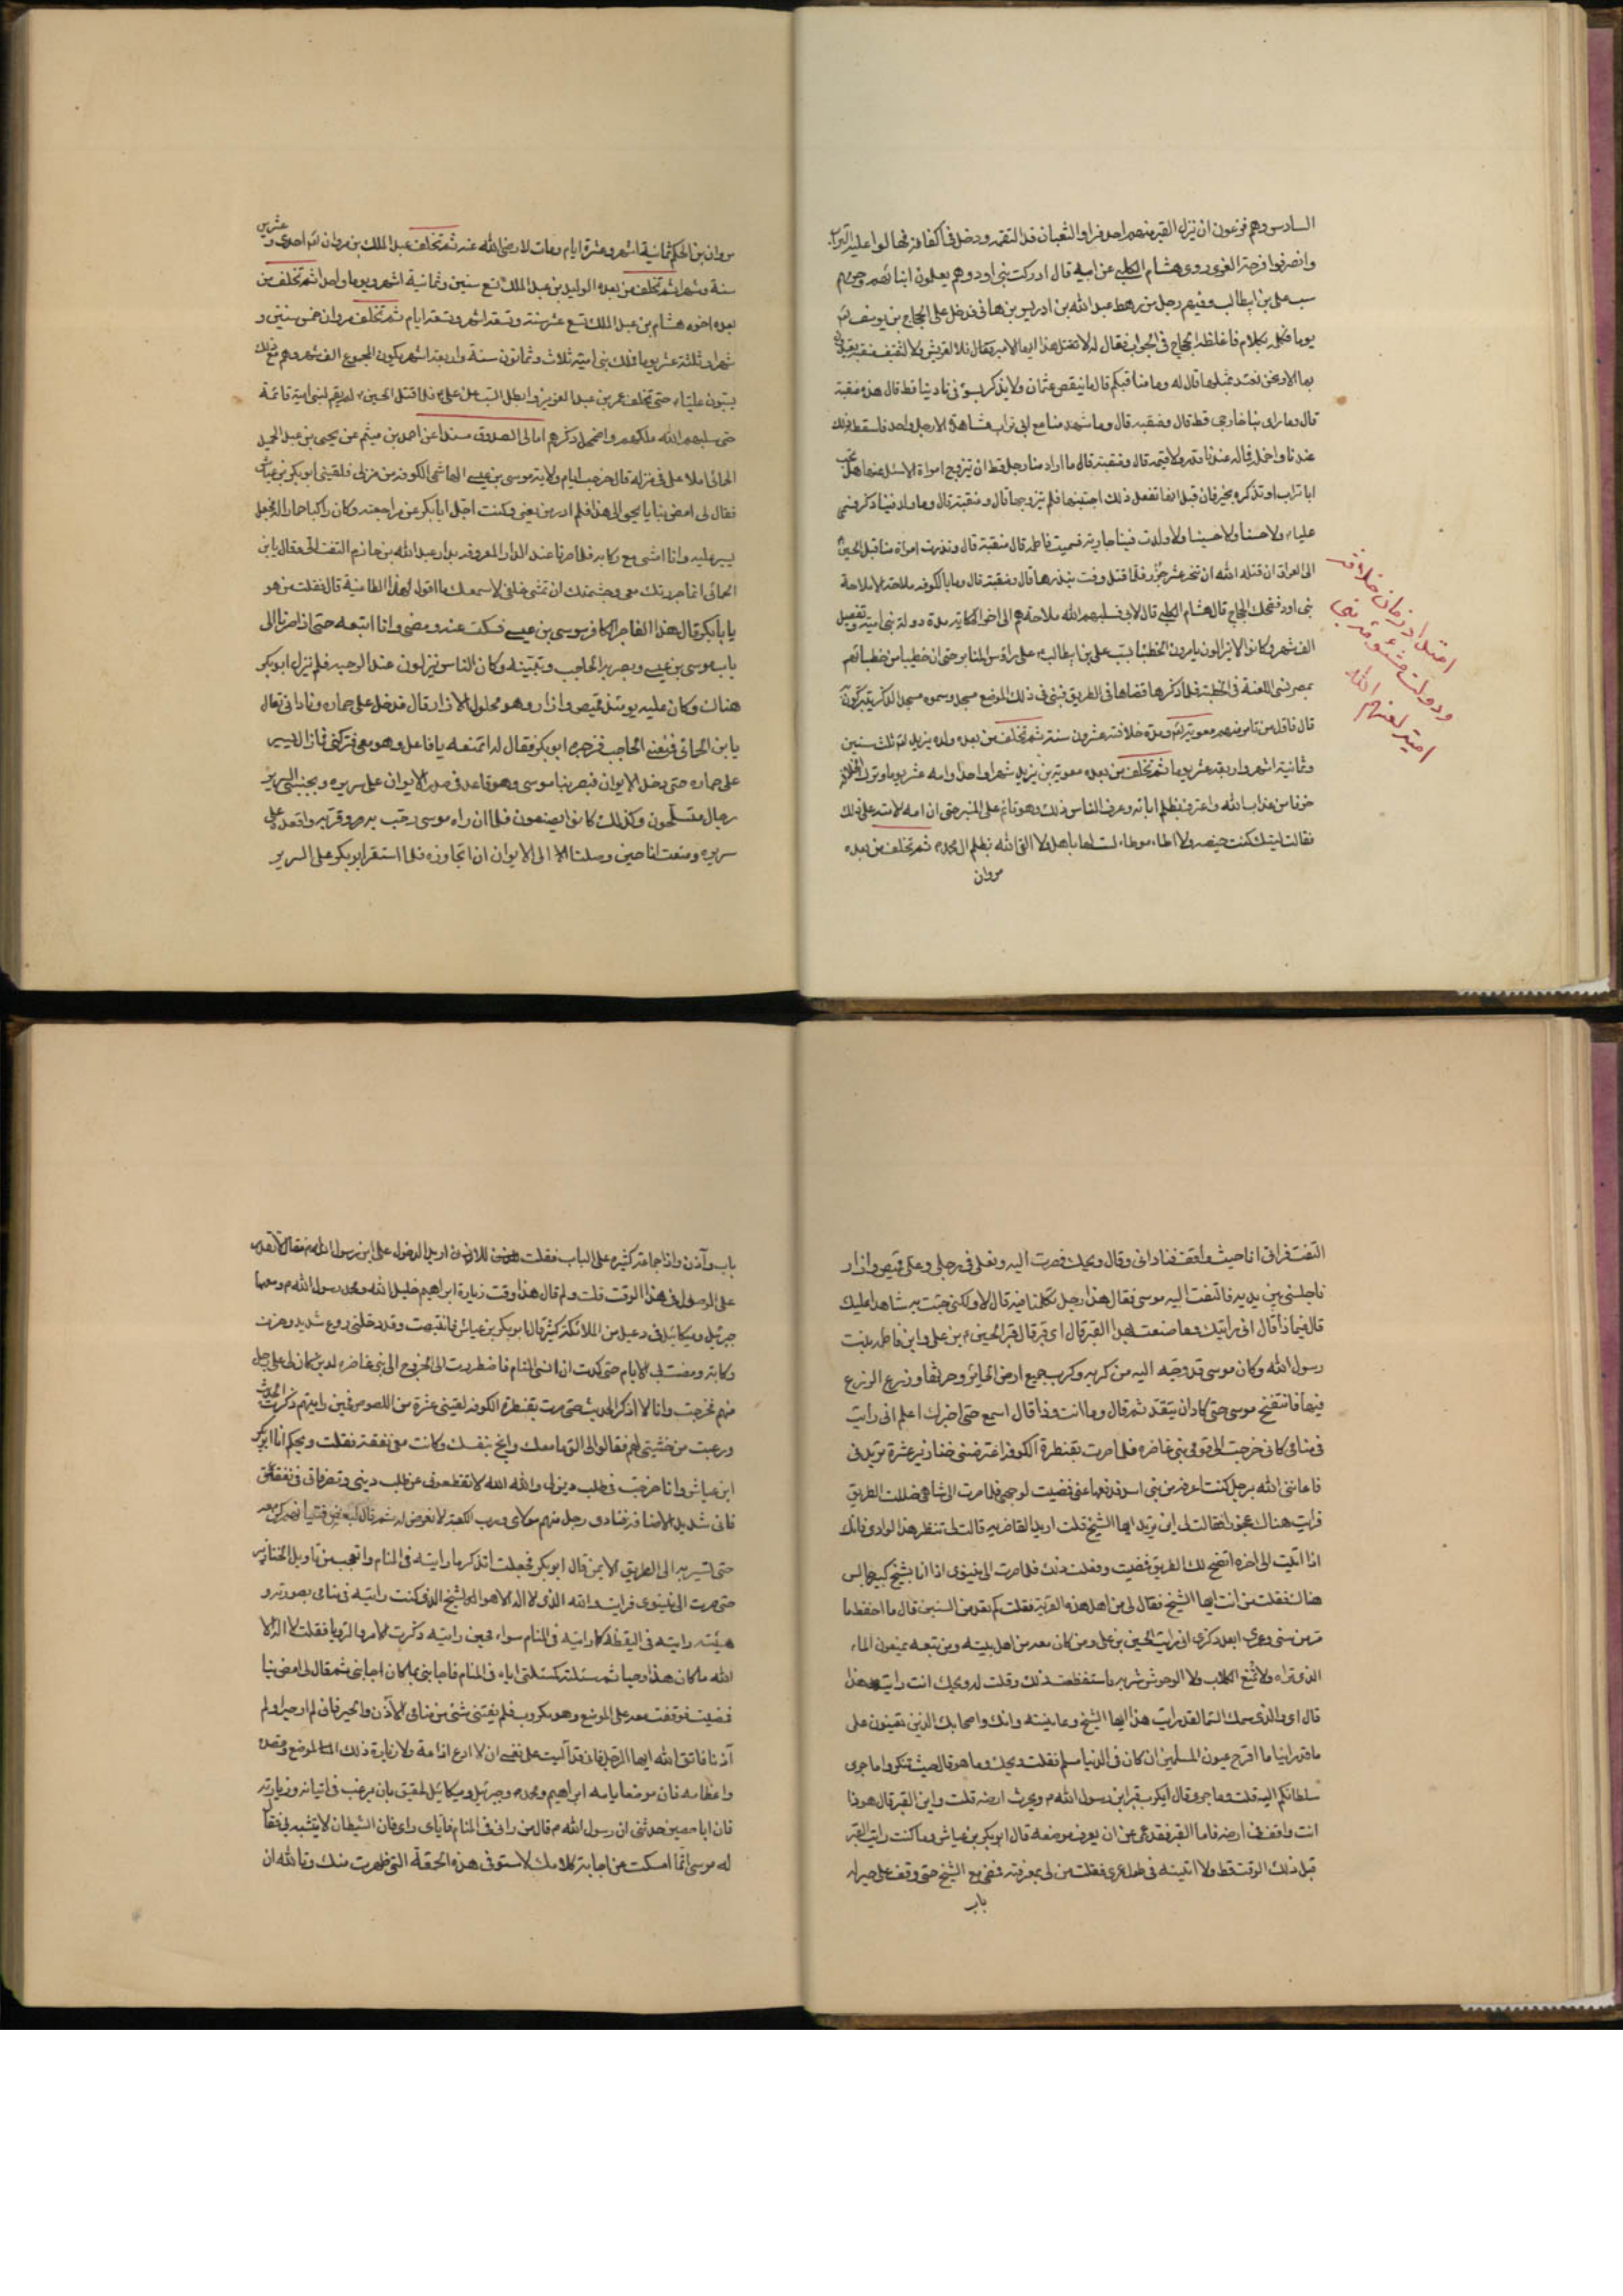 السادس وهم فزعون ان ينزل القبر منهم احد فراوا الثعبان قد التقمه ودخل في اكفانه فهالوا عليه التراب
وانصرفوا فرحة الغرى روى هشام الكلبي عن ابيه قال ادركت بني اود وهم يعلمون ابنائهم وحرمهم
سب علي بن ابيطالب وفيهم رجل من رهط عبد الله بن ادريس بن هاني فدخل على الحجاج بن يوسف
يوما فكلمه بكلام فاغلظ الحجاج في الجواب فقال له لا تقل هذا ايها الامير فقال فلا لقريش ولا لثقيف منقبة يعتدون
بها الا ونحن نعتد بمثلها قال له وما مناقبكم قال ما ينقص عثمان ولا يذكر بسوء في نادينا قط قال هذه منقبة
قال وما راى منا خارجي قط قال ومنقبة قال وما شهد منا مع ابي تراب مشاهده الا رجل واحد فاسقطه ذلك
عندنا واخمله فماله عندنا قدر ولا قيمة قال ومنقبة قال ما اراد منا رجل قط ان يتزوج امراة الا سئل عنها هل تحب
ابا تراب او تذكره بخير فان قيل انها تفعل ذلك اجتنبها فلم يتزوجها قال ومنقبة قال وما ولد فينا ذكر فسمي
عليا ولا حسنا ولا حسينا ولا ولدت فينا جارية فسميت فاطمة قال منقبة قال ونذرت امراة منا قبل الحسين
الى العراق ان قتله الله ان تنحر عشر جزر فلما قتل وفت بنذرها قال ومنقبة قال وما بالكوفة ملاحة الا ملاحة
بني اود فضحك الحجاج قال هشام الكلبي قال لابي فسلبهم الله ملاحتهم الى اخر الحكاية مدة دولة بني امية وتفصيل
الف شهر وكانوا لا يزالون يامرون الخطباء بسب علي بن ابيطالب على رؤس المنابر حتى ان خطيبا من خطبائهم
بمصر نسي اللعنة في الخطبة فلما ذكرها قضاها في الطريق فبني في ذلك الموضع مسجد وسموه مسجد الذكر يتبركون
قال فاول من تامر منهم معوية ومدة خلافته عشرون سنة ثم تخلف من بعده ولده يزيد ثلث سنين
وثمانية اشهر واربعة عشر يوما ثم تخلف من بعده معوية بن يزيد شهرا واحدا وامه عشر يوما وترك الخلافة
خوفا من عذاب الله واعترف بظلم ابائه وعرف الناس ذلك وهو قائم على المنبر حتى ان امه لامته على ذلك
فقالت ليتك كنت حيضه ولا اطاء موطاء لست لها باهل ولا القى الله بظلم ال محمد ثم تخلف من بعده
مروان
امتداد زمان خلافت
ودولت منشؤمه بني
اميه لعنهم الله
مروان بن الحكم ثمانية اشهر وعشرة ايام ومات لا رضي الله عنه ثم تخلف عبد الملك بن مروان احدى وعشرين
سنة وشهرا ثم تخلف من بعده الوليد بن عبد الملك تسع سنين وثمانية اشهر ويوما واحدا ثم تخلف من
بعده اخوه هشام بن عبد الملك تسع عشر سنة وتسعة اشهر وتسعة ايام ثم تخلف مروان خمس سنين و
شهرا وثلثة عشر يوما فملك بني امية ثلاث وثمانون سنة واربعة اشهر يكون المجموع الف شهر وهم مع ذلك
يسبون عليا حتى تخلف عمر بن عبد العزيز وابطل السب عن علي فلما قتل الحسين لم يقم لبني امية قائمة
حتى سلبهم الله ملكهم واضمحل ذكرهم امالى الصدوق مسندا عن احمد بن ميثم عن يحيى بن عبد الحميد
الحماني املا علي في منزله قال خرجت ايام ولاية موسى بن عيسى الهاشمي الكوفة من منزلي فلقيني ابو بكر بن عياش
فقال لي امض بنا يا يحيى الى هذا فلم ادر من يعني وكنت اجل ابا بكر عن مراجعته وكان راكبا حمارا له فجعل
يسير عليه وانا امشي مع ركابه فلما صرنا عند الدار المعروفة بدار عبد الله بن حازم التفت الي فقال يا بن
الحماني انما جررتك معي وجشمتك ان تمشي خلفي لاسمعك ما اقول لهذا الطاغية قال فقلت من هو
يا بابكر قال هذا الفاجر الكافر موسى بن عيسى فسكت عنه ومضى وانا اتبعه حتى اذا صرنا الى
باب موسى بن عيسى وبصر به الحاجب وتبينه وكان الناس ينزلون عند الرحبة فلم ينزل ابو بكر
هناك وكان عليه يومئذ قميص وازار وهو محلول الازار قال فدخل على حماره وناداني تعال
يا بن الحماني فمنعني الحاجب فزجره ابو بكر فقال له اتمنعه يا فاعل وهو معي فتركني فما زال يسير
على حماره حتى دخل الايوان فبصر بنا موسى وهو قاعد في صدر الايوان على سريره وبجنبتي السرير
رجال متسلحون وكذلك كانوا يصنعون فلما ان راه موسى رحب به وقربه واقعده على
سريره ومنعت انا حين وصلت الى الايوان ان اتجاوزه فلما استقر ابو بكر على السرير
التفت فراني انا حيث واقف فناداني وقال ويحك فصرت اليه ونعلي في رجلي وعلي قميص وازار
فاجلسني بين يديه فالتفت اليه موسى فقال هذا رجل تكلمنا فيه قال لا ولكني جئت به شاهدا عليك
قال فيماذا قال اني رايتك وما صنعت بهذا القبر قال اي قبر قال قبر الحسين بن علي وابن فاطمة بنت
رسول الله وكان موسى قد وجه اليه من كربه وكرب جميع ارض الحائر وحرثها وزرع الزرع
فيها فانتفخ موسى حتى كاد ان ينقد ثم قال وما انت وذا قال اسمع حتى اخبرك اعلم اني رايت
في منامي كاني خرجت الى قومي بني غاضره فلما صرت بقنطرة الكوفة اعترضني خنازير عشرة تريدني
فاعانني الله برجل كنت اعرفه من بني اسد فدفعها عني فمضيت لوجهي فلما صرت الى شاهي ضللت الطريق
فرايت هناك عجوزا فقالت لي اين تريد ايها الشيخ قلت اريد الغاضرية قالت لي تنظر هذا الوادي فانك
اذا اتيت الى اخره اتضح لك الطريق فمضيت وفعلت ذلك فلما صرت الى نينوى اذا انا بشيخ كبير جالس
هناك فقلت من انت ايها الشيخ فقال لي من اهل هذه القرية فقلت كم تعد من السنين قال ما احفظ ما
مر من سني وعمري ابعد ذكري اني رايت الحسين بن علي ومن كان معه من اهل بيته ومن تبعه يمنعون الماء
الذي تراه ولا تمنع الكلاب ولا الوحوش شربه فاستفظعت ذلك وقلت له ويحك انت رايت هذا
قال اي والذي سمك السماء لقد رايت هذا ايها الشيخ وعاينته وانك واصحابك الذين تعينون على
ما قد راينا مما اقرح عيون المسلمين ان كان في الدنيا مسلم فقلت ويحك وما هو قال حيث لم تنكروا ما جرى
سلطانكم اليه قلت وما جرى قال ايكرب قبر ابن رسول الله ويحرث ارضه قلت واين القبر قال هو ذا
انت واقف في ارضه فاما القبر فقد عمي عن ان يعرف موضعه قال ابو بكر بن عياش وما كنت رايت القبر
قبل ذلك الوقت قط ولا اتيته في طول عمري فقلت من لي بمعرفته فمضى مع الشيخ حتى وقف على حير له
باب
باب وآذن واذا جماعة كثيرة على الباب فقلت للاذن اريد الدخول على ابن رسول الله فقال لا تقدر
على الوصول في هذا الوقت قلت ولم قال هذا وقت زيارة ابراهيم خليل الله ومحمد رسول الله ومعهما
جبرئيل وميكائيل في رعيل من الملائكة كثير قال ابو بكر بن عياش فانتبهت وقد دخلني روع شديد وحزن
وكابة ومضت بي الايام حتى كدت ان انسى المنام فاضطررت الى الخروج الى بني غاضره لدين كان لي على رجل
منهم فخرجت وانا لا اذكر الحديث حتى صرت بقنطرة الكوفة لقيني عشرة من اللصوص فحين رايتهم ذكرت الحديث
ورعبت من خشيتي لهم فقالوا لي الق ما معك وانج بنفسك وكانت معي نفقة فقلت ويحكم انا ابو بكر
ابن عياش وانا خرجت في طلب دين لي والله الله لا تقطعوني عن طلب ديني وتضراتي في نفقتي
فاني شديد الاضاقة فنادى رجل منهم مولاي ورب الكعبة لا نعرض له ثم قال لبعض فتيانهم كن معه
حتى تسير به الى الطريق الايمن قال ابو بكر فجعلت اتذكر ما رايته في المنام واتعجب من تاويل الخنازير
حتى صرت الى نينوى فرايت والله الذي لا اله الا هو الشيخ الذي كنت رايته في منامي بصورته و
هيئته رايته في اليقظة كما رايته في المنام سواء فحين رايته ذكرت الامر والرؤيا فقلت لا اله الا
الله ما كان هذا وحيا ثم سئلته كمسئلتي اياه في المنام فاجابني بما كان اجابني ثم قال لي امض بنا
فمضيت فوقفت معه على الموضع وهو مكروب فلم يفتني شئ من منامي الا الآذن والحير فاني لم ار حيرا ولم
آذنا فاتق الله ايها الرجل فاني قد آليت على نفسي ان لا ادع اذاعة ولا زيارة ذلك الموضع وقصده
واعظامه فان موضعا يامه ابراهيم ومحمد وجبرئيل وميكائيل لحقيق بان يرغب في اتيانه وزيارته
فان ابا حصين حدثني ان رسول الله قال من راني في المنام فاياي راى فان الشيطان لا يتشبه بي فقال
له موسى انما امسكت عن اجابة كلامك لاستوفي هذه الحمقة التي ظهرت منك وتالله ان